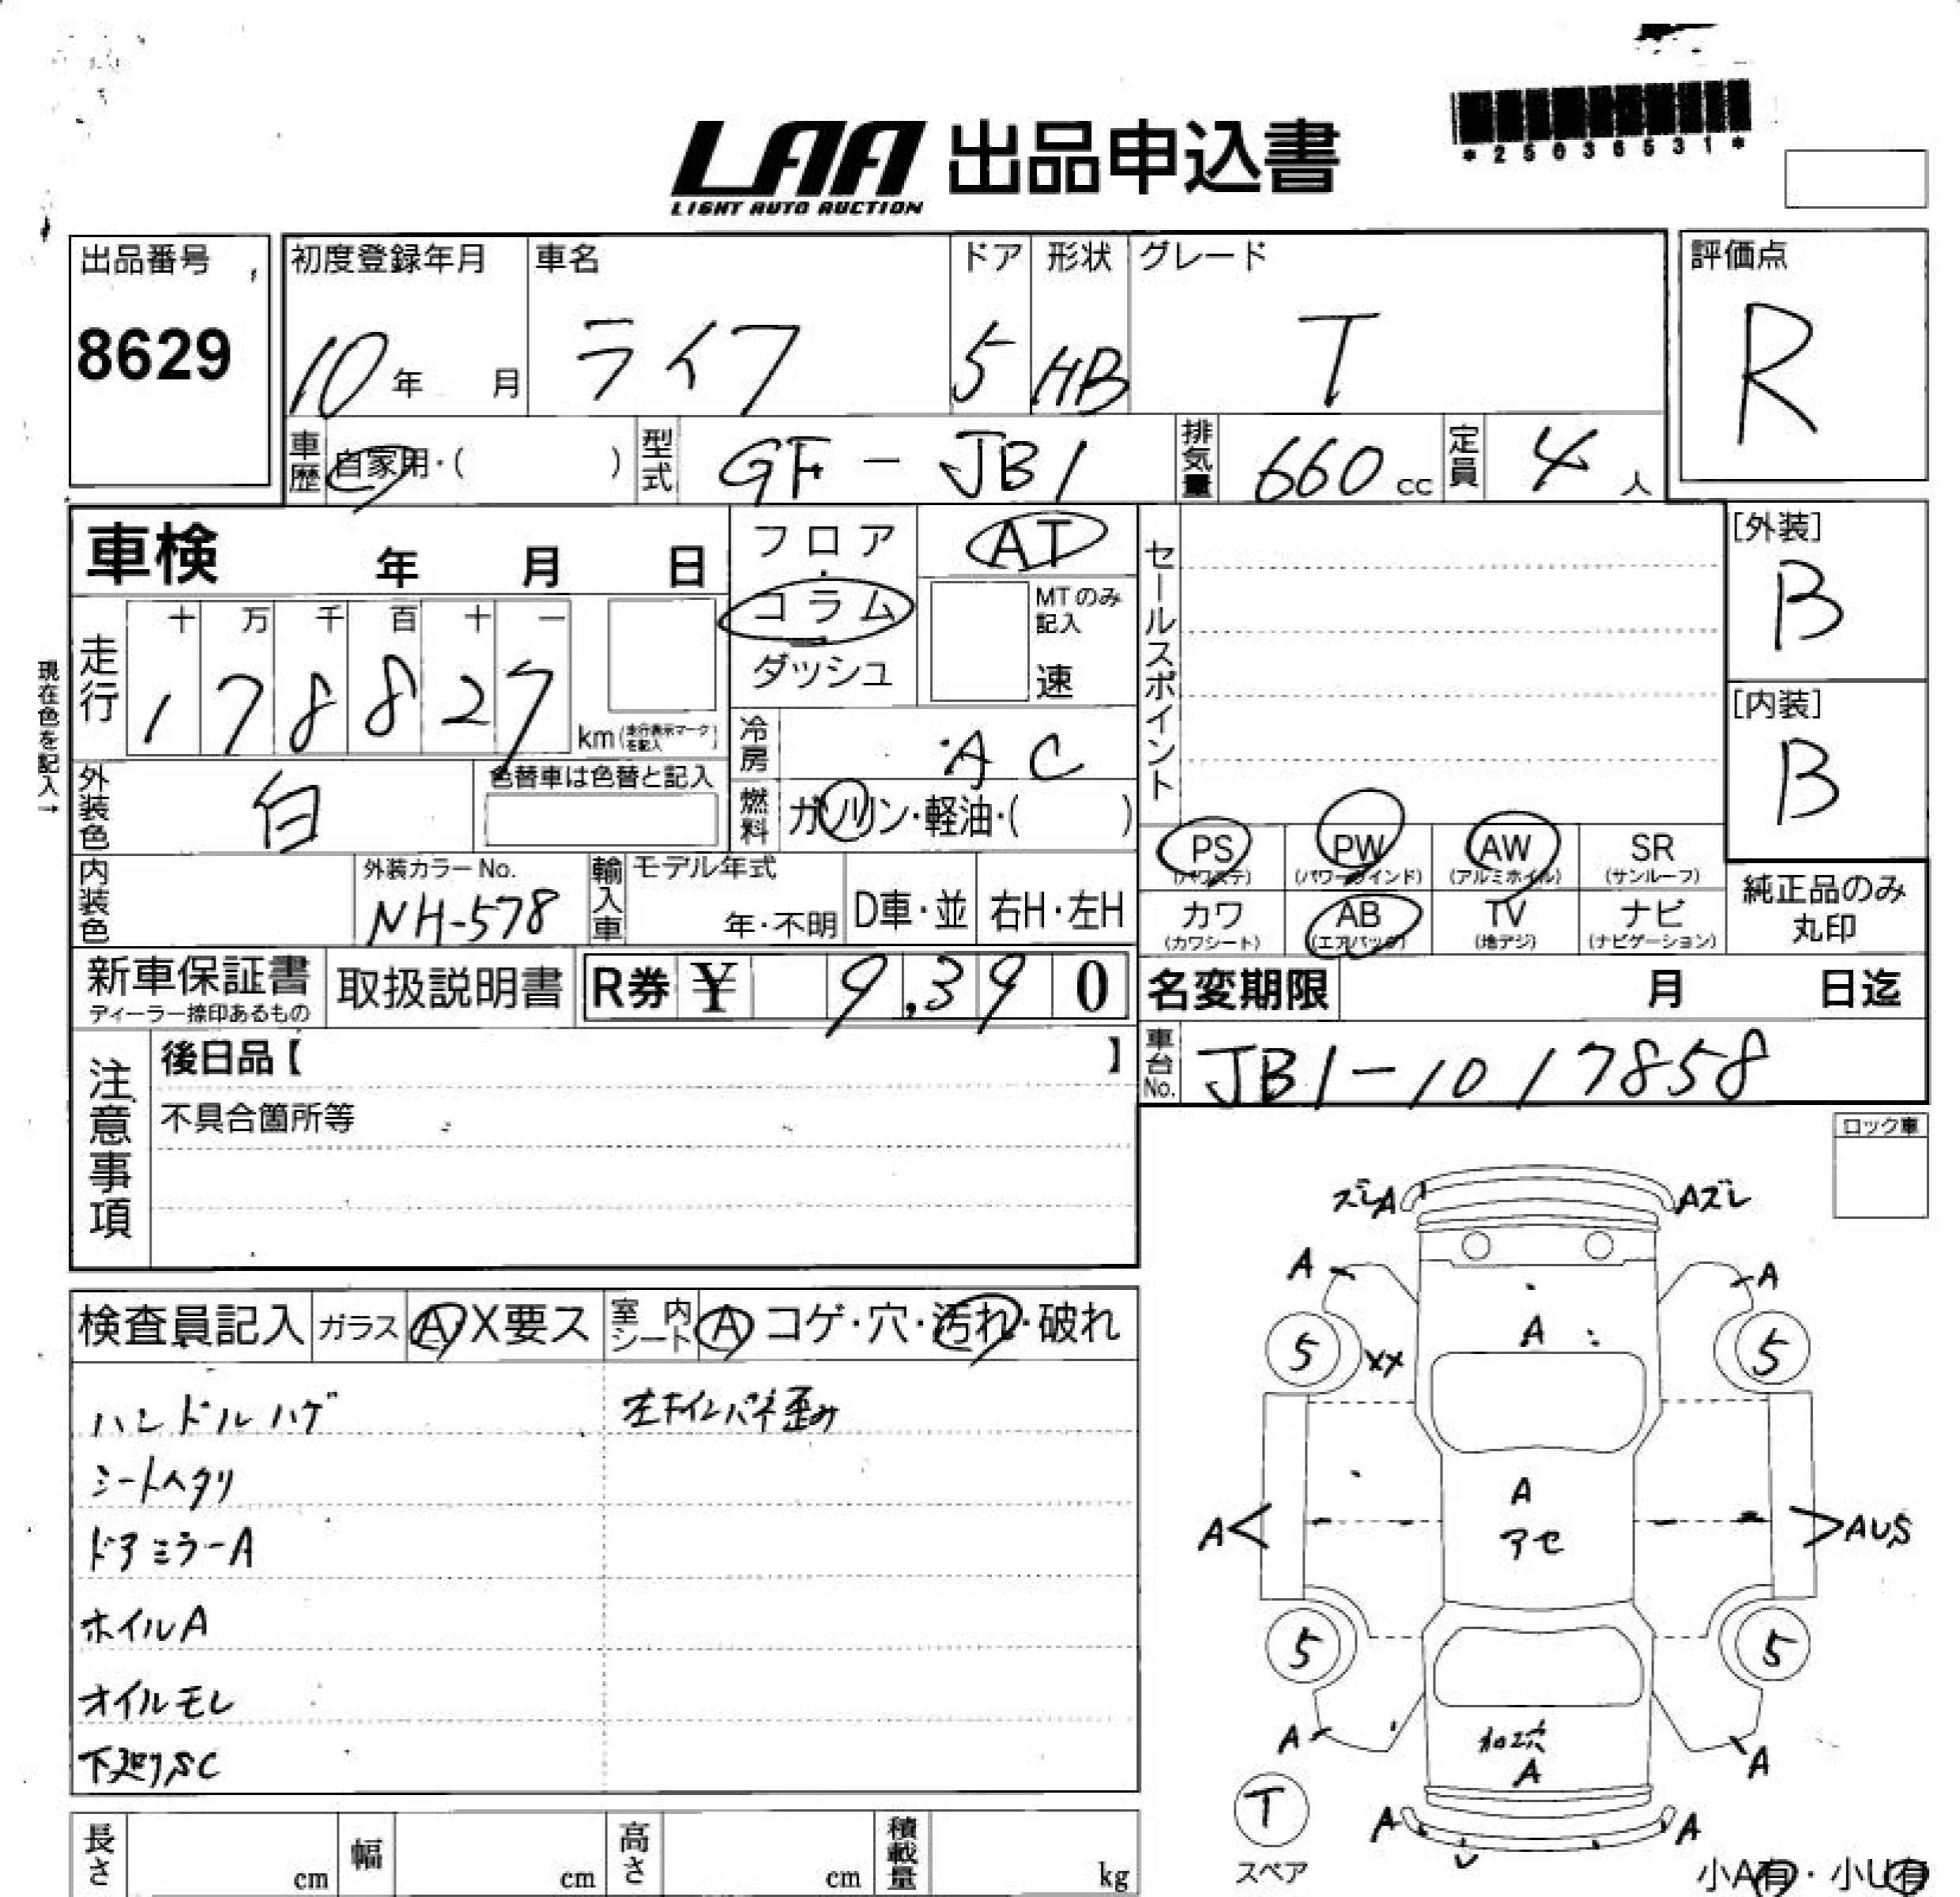 LAA 出品申込書
LIGHT AUTO AUCTION
*25036531*
出品番号
8629
初度登録年月 車名 ドア 形状 グレード
10年 月 ライフ 5 HB T
評価点
R
車歴 自家用・( ) 型式 GF-JB1 排気量 660cc 定員 4人
車検 年 月 日
フロア
・
コラム
・
ダッシュ
AT
MTのみ
記入
速
セールスポイント
[外装]
B
[内装]
B
現在色を記入→
走行
十 万 千 百 十 一
1 7 8 8 2 7
km(走行表示マークを記入)
冷房 AC
外装色 白
色替車は色替と記入
燃料 ガソリン・軽油・( )
PS AW SR PW
(パワステ) (パワーウインド) (アルミホイル) (サンルーフ)
カワ AB TV ナビ
(カワシート) (エアバッグ) (地デジ) (ナビゲーション)
純正品のみ
丸印
内装色
外装カラーNo.
NH-578
輸入車 モデル年式
年・不明 D車・並 右H・左H
新車保証書
ディーラー捺印あるもの
取扱説明書
R券 ¥ 9,390
名変期限 月 日迄
車台No. JB1-1017858
注意事項
後日品【 】
不具合箇所等
ロック車
検査員記入 ガラス A X要ス 室内シート A コゲ・穴・汚れ・破れ
ハンドルハゲ 左下インパネ歪み
シートヘタリ
ドアミラーA
ホイルA
オイルモレ
下廻りSC
ズレA Aズレ
A A
A
5 XX 5
A
A アセ AUS
5 5
A 加ン穴 A
A
T
スペア
A A
U
長さ cm 幅 cm 高さ cm 積載量 kg
小A有・小U有